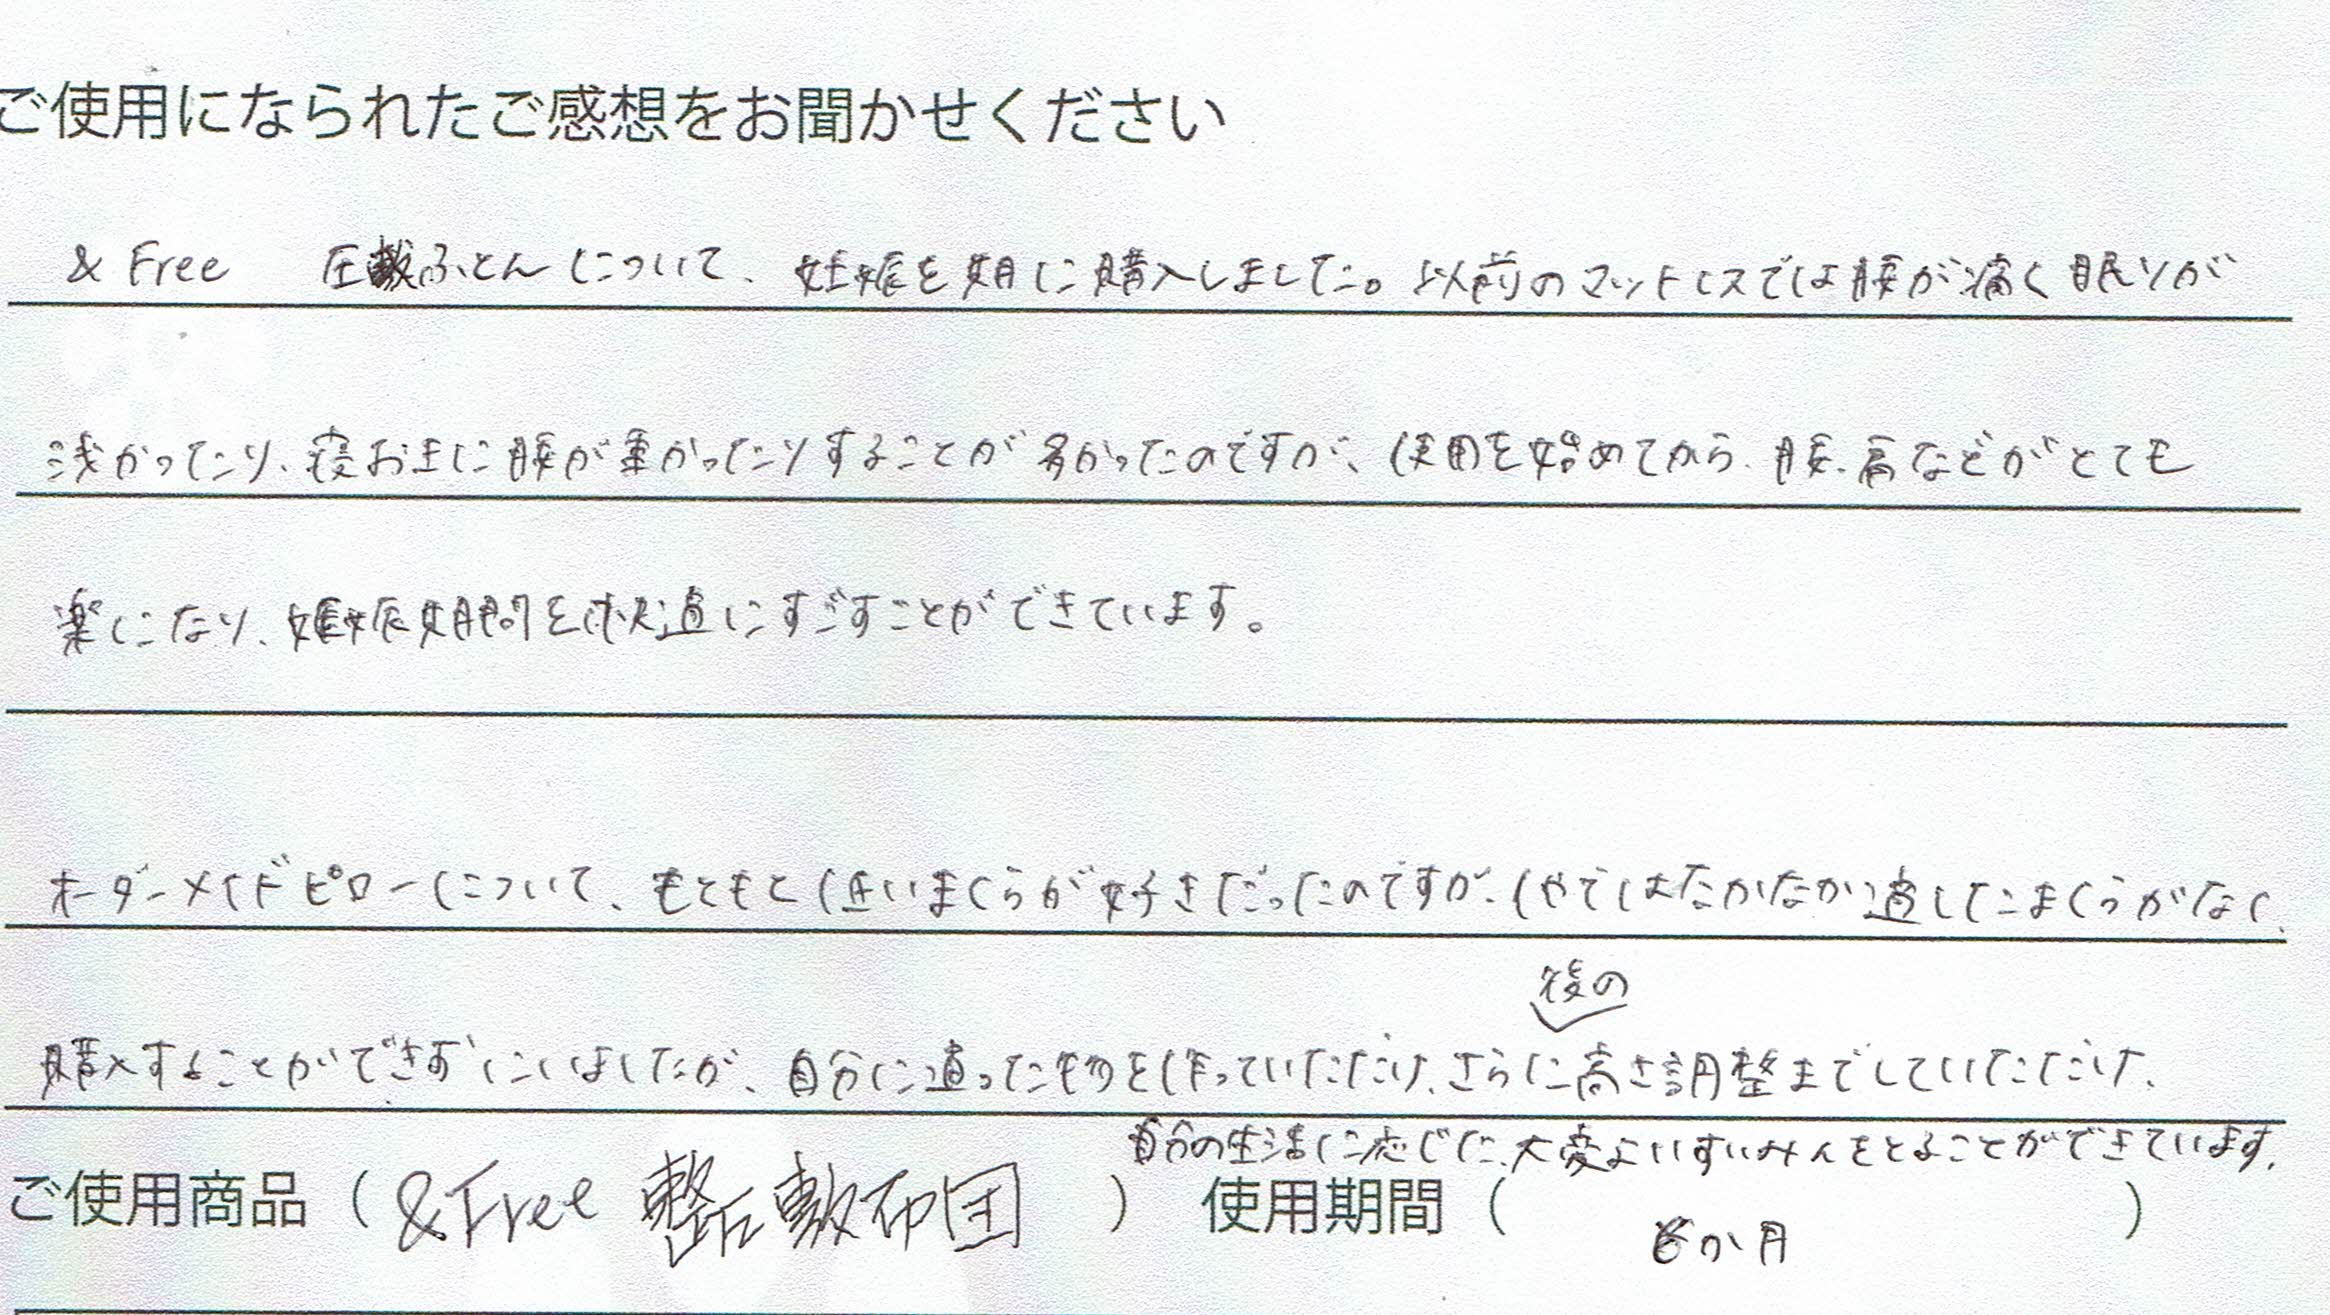 ご使用になられたご感想をお聞かせください
& Free 圧敷ふとんについて、妊娠を期に購入しました。以前のマットレスでは腰が痛く眠りが
浅かったり、寝おきに腰が重かったりすることが多かったのですが、使用を始めてから、腰、肩などがとても
楽になり、妊娠期間を快適にすごすことができています。
オーダーメイドピローについて、もともと低いまくらが好きだったのですが、しやではなかなか適したまくらがなく、
後の
購入することができずにいましたが、自分に適ったものを作っていただけ、さらに高さ調整までしていただけ、
自分の生活に応じた、大変よいすいみんをとることができています。
ご使用商品（&Free 整圧敷布団） 使用期間（6か月）